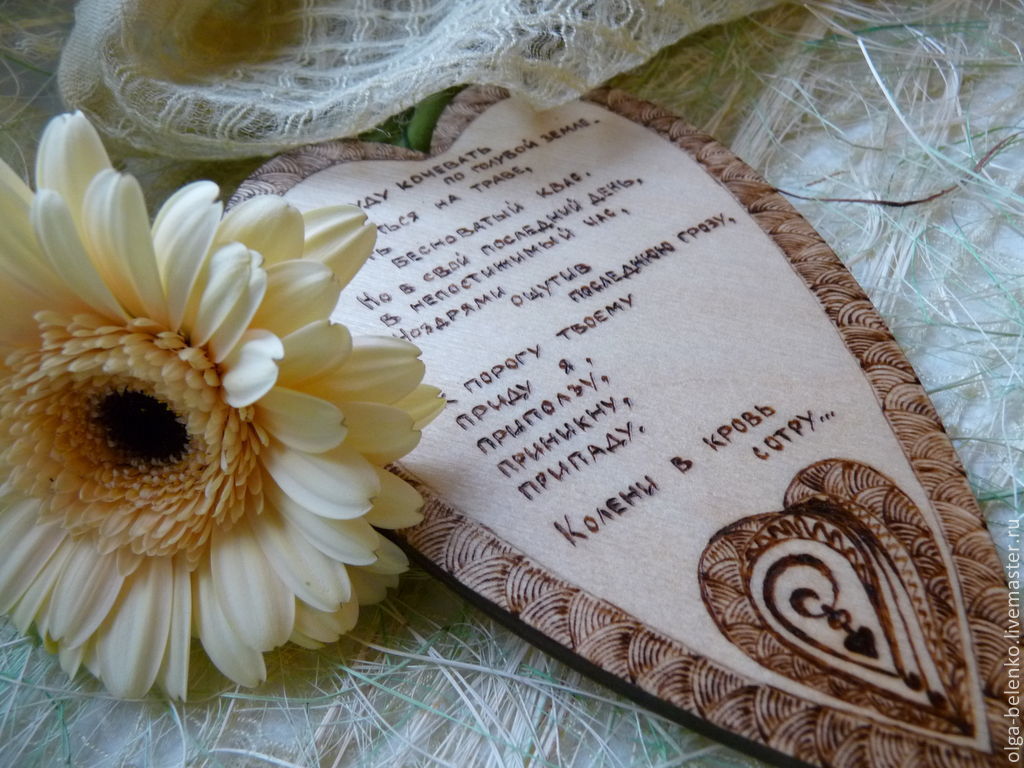 УДУ КОЧЕВАТЬ
ПО ГОЛУБОЙ ЗЕМЛЕ.
ТЬСЯ НА ТРАВЕ,
Ь БЕСНОВАТЫЙ КВАС.
НО В СВОЙ ПОСЛЕДНИЙ ДЕНЬ,
В НЕПОСТИЖИМЫЙ ЧАС,
НОЗДРЯМИ ОЩУТИВ
ПОСЛЕДНЮЮ ГРОЗУ,
ПОРОГУ ТВОЕМУ
ПРИДУ Я,
ПРИПОЛЗУ,
ПРИНИКНУ,
ПРИПАДУ.
КОЛЕНИ В КРОВЬ
СОТРУ...
olga-belenko.livemaster.ru